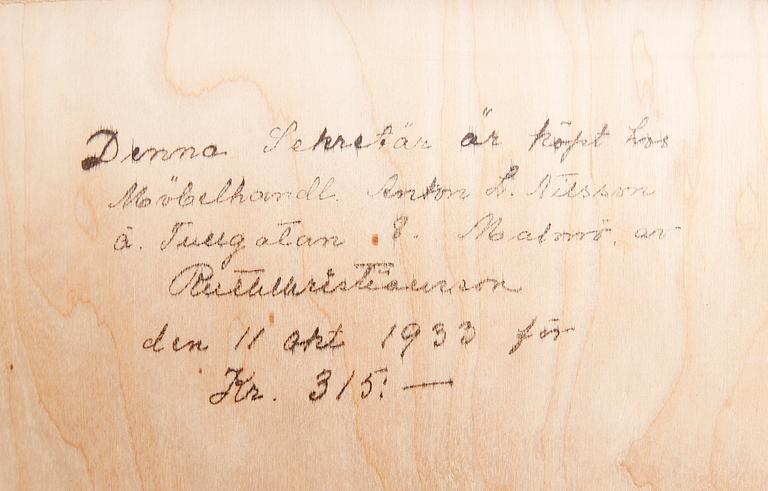 Denna Sekretär är köpt hos
Möbelhandl. Anton L. Nilsson
å. 8. Malmö. av
Ruth Christiansson
den 11 okt 1933 för
Kr. 315:—